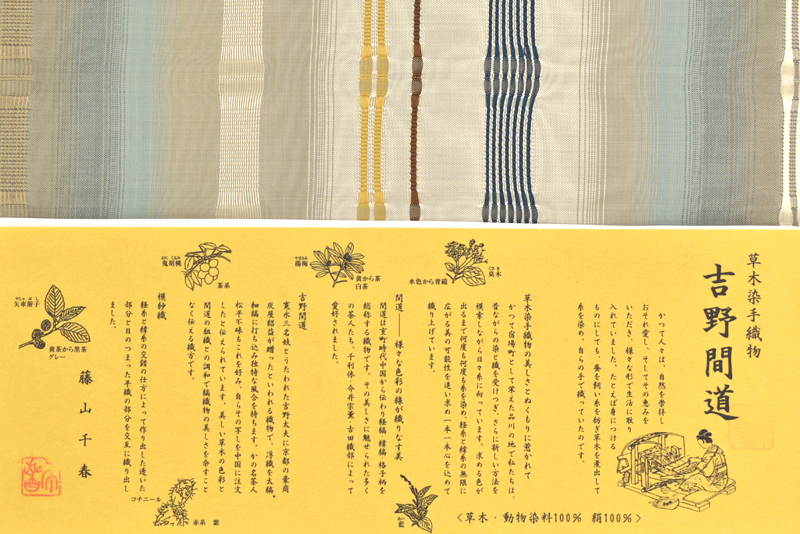 草木染手織物
吉野間道
かつて人々は、自然を崇拝し
おそれ愛し、そしてその恵みを
いただき、様々な形で生活に取り
入れていました。たとえば身につける
ものにしても、蚕を飼い糸を紡ぎ草木を煮出して
糸を染め、自らの手で織っていたのです。
草木染手織物の美しさとぬくもりに惹かれて
かつて宿場町として栄えた品川の地で私たちは、
昔ながらの染と織を受けつぎ、さらに新しい方法を
模索しながら日々糸に向っています。求める色が
出るまで何度も何度も糸を染め、経糸と緯糸の無限に
広がる美の可能性を追い求め一本一本心を込めて
織り上げています。
間道――様々な色彩の縞が織りなす美
間道は室町時代中国から伝わり経縞、緯縞、格子柄を
総称する織物です。その美しさに魅せられた多く
の茶人たち、千利休・今井宗薫・古田織部によって
愛好されました。
吉野間道
寛永三名妓とうたわれた吉野太夫に京都の豪商
灰屋紹益が贈ったといわれる織物で、浮織を太縞、
細縞に打ち込み独特な風合を持ちます。かの名茶人
松平不昧もこれを好み、自らその写しを中国に注文
したと伝えられています。美しい草木の色彩と
間道の組織との調和で縞織物の美しさを余すこと
なく伝える織方です。
模紗織
経糸と緯糸の交錯の仕方によって作り出した透いた
部分と目のつまった平織の部分を交互に織り出し
ました。
藤山千春
臭木
くさぎ
水色から青磁
楊梅
やまもも
黄から茶
白茶
鬼胡桃
おにぐるみ
茶系
矢車附子
やしゃぶし
黄茶から黒茶
グレー
コチニール
赤系 紫
藍
あい
〈草木・動物染料100% 絹100%〉